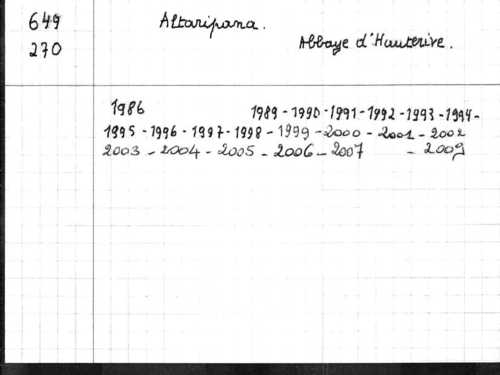 649
270
Altaripana.
Abbaye d'Hauterive.
1986 1989 - 1990 - 1991 - 1992 - 1993 - 1994 -
1995 - 1996 - 1997 - 1998 - 1999 - 2000 - 2001 - 2002
2003 - 2004 - 2005 - 2006 - 2007 - 2009